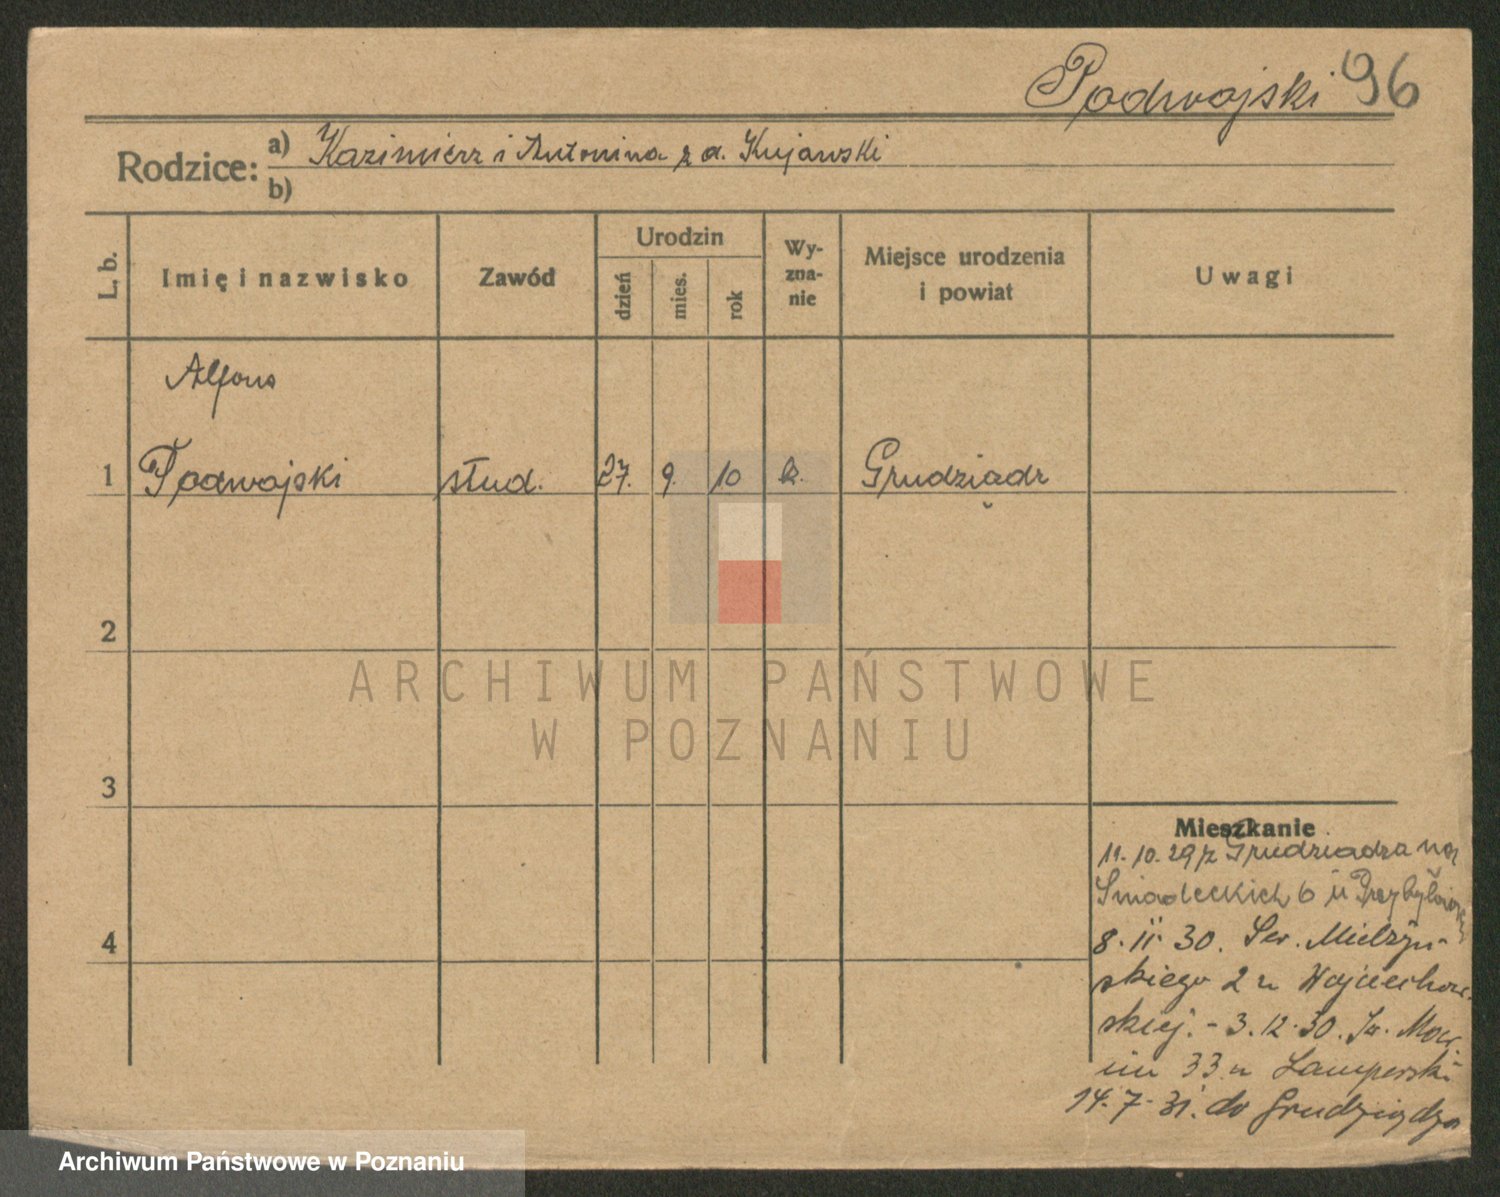 Podwojski 96
Rodzice: a) Kazimierz i Antonina z d. Kujawski
b)
L. b. Imię i nazwisko Zawód Urodzin dzień mies. rok Wy-zna-nie Miejsce urodzenia i powiat Uwagi
Alfons
1 Podwojski stud. 27. 9. 10 k. Grudziądz
2
ARCHIWUM PAŃSTWOWE
W POZNANIU
3
Mieszkanie
11.10.29 z Grudziadza na
Sniadeckich 6 u
4
8.11.30. Sew. Mielżyń-
skiego 2 u Wojciechow-
skiej. - 3.12.30. Św. Mar-
cin 33 u Lamperski
14.7.31. do Grudziądza
Archiwum Państwowe w Poznaniu